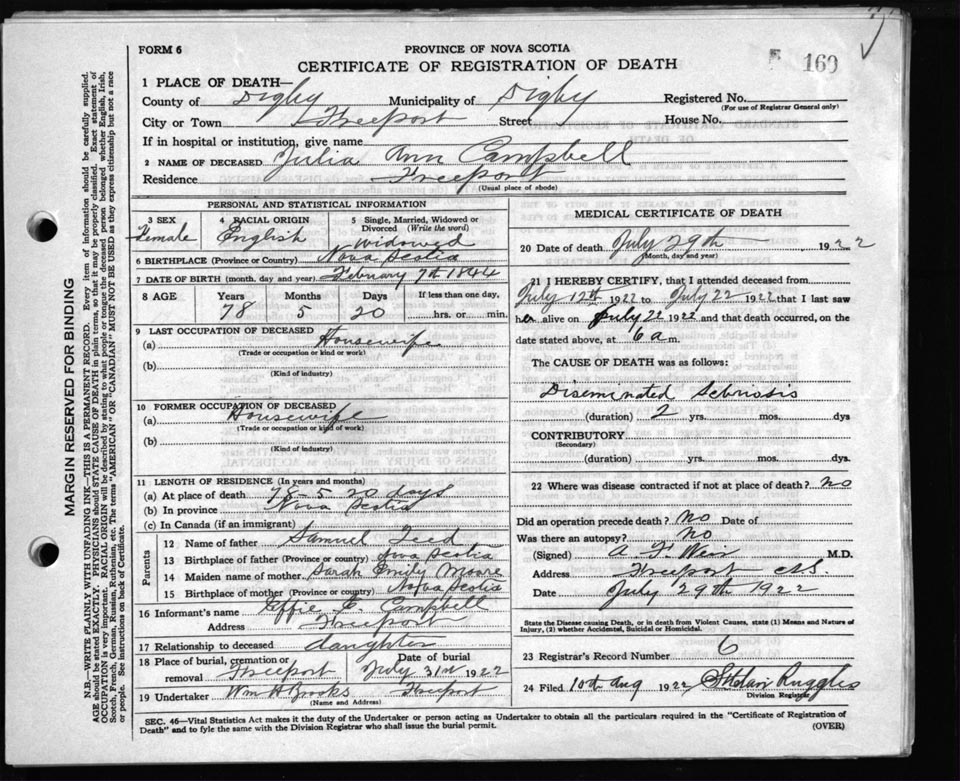 FORM 6
PROVINCE OF NOVA SCOTIA
CERTIFICATE OF REGISTRATION OF DEATH
160
1 PLACE OF DEATH—
County of Digby Municipality of Digby Registered No.
(For use of Registrar General only)
City or Town Freeport Street House No.
If in hospital or institution, give name
2 NAME OF DECEASED Julia Ann Campbell
Residence Freeport
(Usual place of abode)
PERSONAL AND STATISTICAL INFORMATION
3 SEX Female
4 RACIAL ORIGIN English
5 Single, Married, Widowed or Divorced (Write the word) Widowed
6 BIRTHPLACE (Province or Country) Nova Scotia
7 DATE OF BIRTH (month, day and year) February 7th 1844
8 AGE Years Months Days If less than one day,
78 5 20 hrs. or min.
9 LAST OCCUPATION OF DECEASED
(a) Housewife
(Trade or occupation or kind or work)
(b)
(Kind of industry)
10 FORMER OCCUPATION OF DECEASED
(a) Housewife
(Trade or occupation or kind of work)
(b)
(Kind of industry)
11 LENGTH OF RESIDENCE (In years and months)
(a) At place of death 78-5 20 days
(b) In province Nova Scotia
(c) In Canada (if an immigrant)
Parents
12 Name of father Samuel Teed
13 Birthplace of father (Province or country) Nova Scotia
14 Maiden name of mother Sarah Emily Moore
15 Birthplace of mother (Province or country) Nova Scotia
16 Informant's name Effie E. Campbell
Address Freeport
17 Relationship to deceased daughter
18 Place of burial, cremation or removal Freeport Date of burial July 31st 1922
19 Undertaker Wm H Brooks Freeport
(Name and Address)
MEDICAL CERTIFICATE OF DEATH
20 Date of death July 29th 1922
(Month, day and year)
21 I HEREBY CERTIFY, that I attended deceased from
July 12th 1922 to July 22 1922 that I last saw
her alive on July 22 1922 and that death occurred, on the
date stated above, at 6 a m.
The CAUSE OF DEATH was as follows:
Diseminated
(duration) 2 yrs. mos. dys
CONTRIBUTORY
(Secondary)
(duration) yrs. mos. dys.
22 Where was disease contracted if not at place of death? no
Did an operation precede death? no Date of
Was there an autopsy? no
(Signed) A F Weir M.D.
Address Freeport N.S.
Date July 29th 1922
State the Disease causing Death, or in death from Violent Causes, state (1) Means and Nature of
Injury, (2) whether Accidental, Suicidal or Homicidal.
23 Registrar's Record Number 6
24 Filed 10th Aug 1922 Ruggles
Division Registrar
SEC. 46—Vital Statistics Act makes it the duty of the Undertaker or person acting as Undertaker to obtain all the particulars required in the "Certificate of Registration of
Death" and to fyle the same with the Division Registrar who shall issue the burial permit.
(OVER)
MARGIN RESERVED FOR BINDING
N.B.—WRITE PLAINLY WITH UNFADING INK—THIS IS A PERMANENT RECORD. Every item of information should be carefully supplied.
AGE should be stated EXACTLY. PHYSICIANS should STATE CAUSE OF DEATH in plain terms, so that it may be properly classified. Exact statement of
OCCUPATION is very important. RACIAL ORIGIN will be described by stating to what people or tongue the deceased person belonged whether English, Irish,
Scotch, French, German, Russian, Ruthenian, etc. The terms "AMERICAN" OR "CANADIAN" MUST NOT BE USED as they express citizenship but not a race
or people. See instructions on back of Certificate.